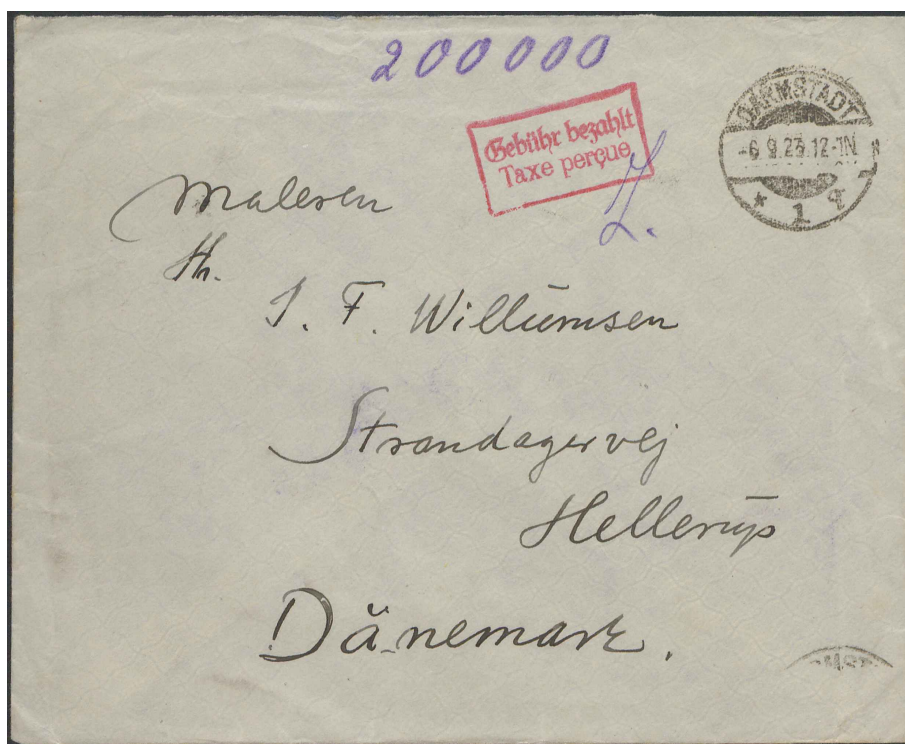 200000
Gebühr bezahlt
Taxe perçue
DARMSTADT
-6.9.23.12-1N
* 1 *
Maleren
Hr.
J. F. Willumsen
Strandagervej
Hellerup
Dänemark.